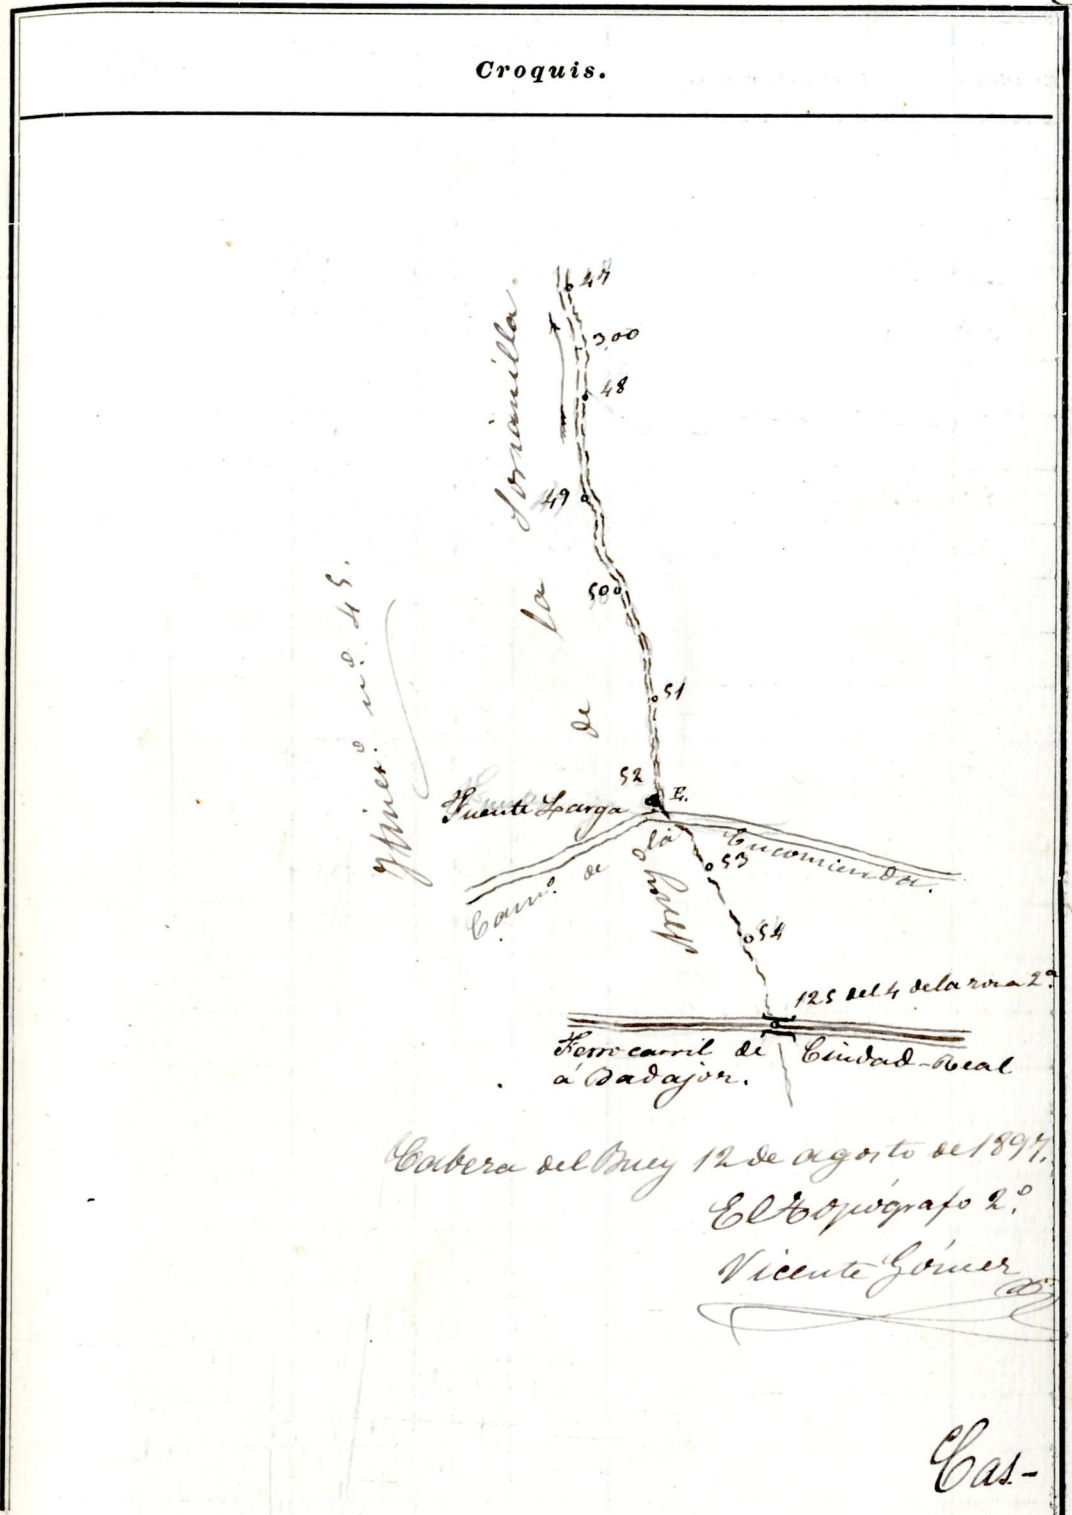 Croquis.
47
3,00
48
49
50
51
52
E.
Fuente Larga
53
54
Itiner.º n.º 45.
Arroyo de la Sorianilla.
Cam.º de la Encomienda.
125 del 4 de la zona 2.ª
Ferro carril de Ciudad-Real
á Badajoz.
Cabeza del Buey 12 de agosto de 1897.
El Topógrafo 2.º
Vicente Gómez
Cas-